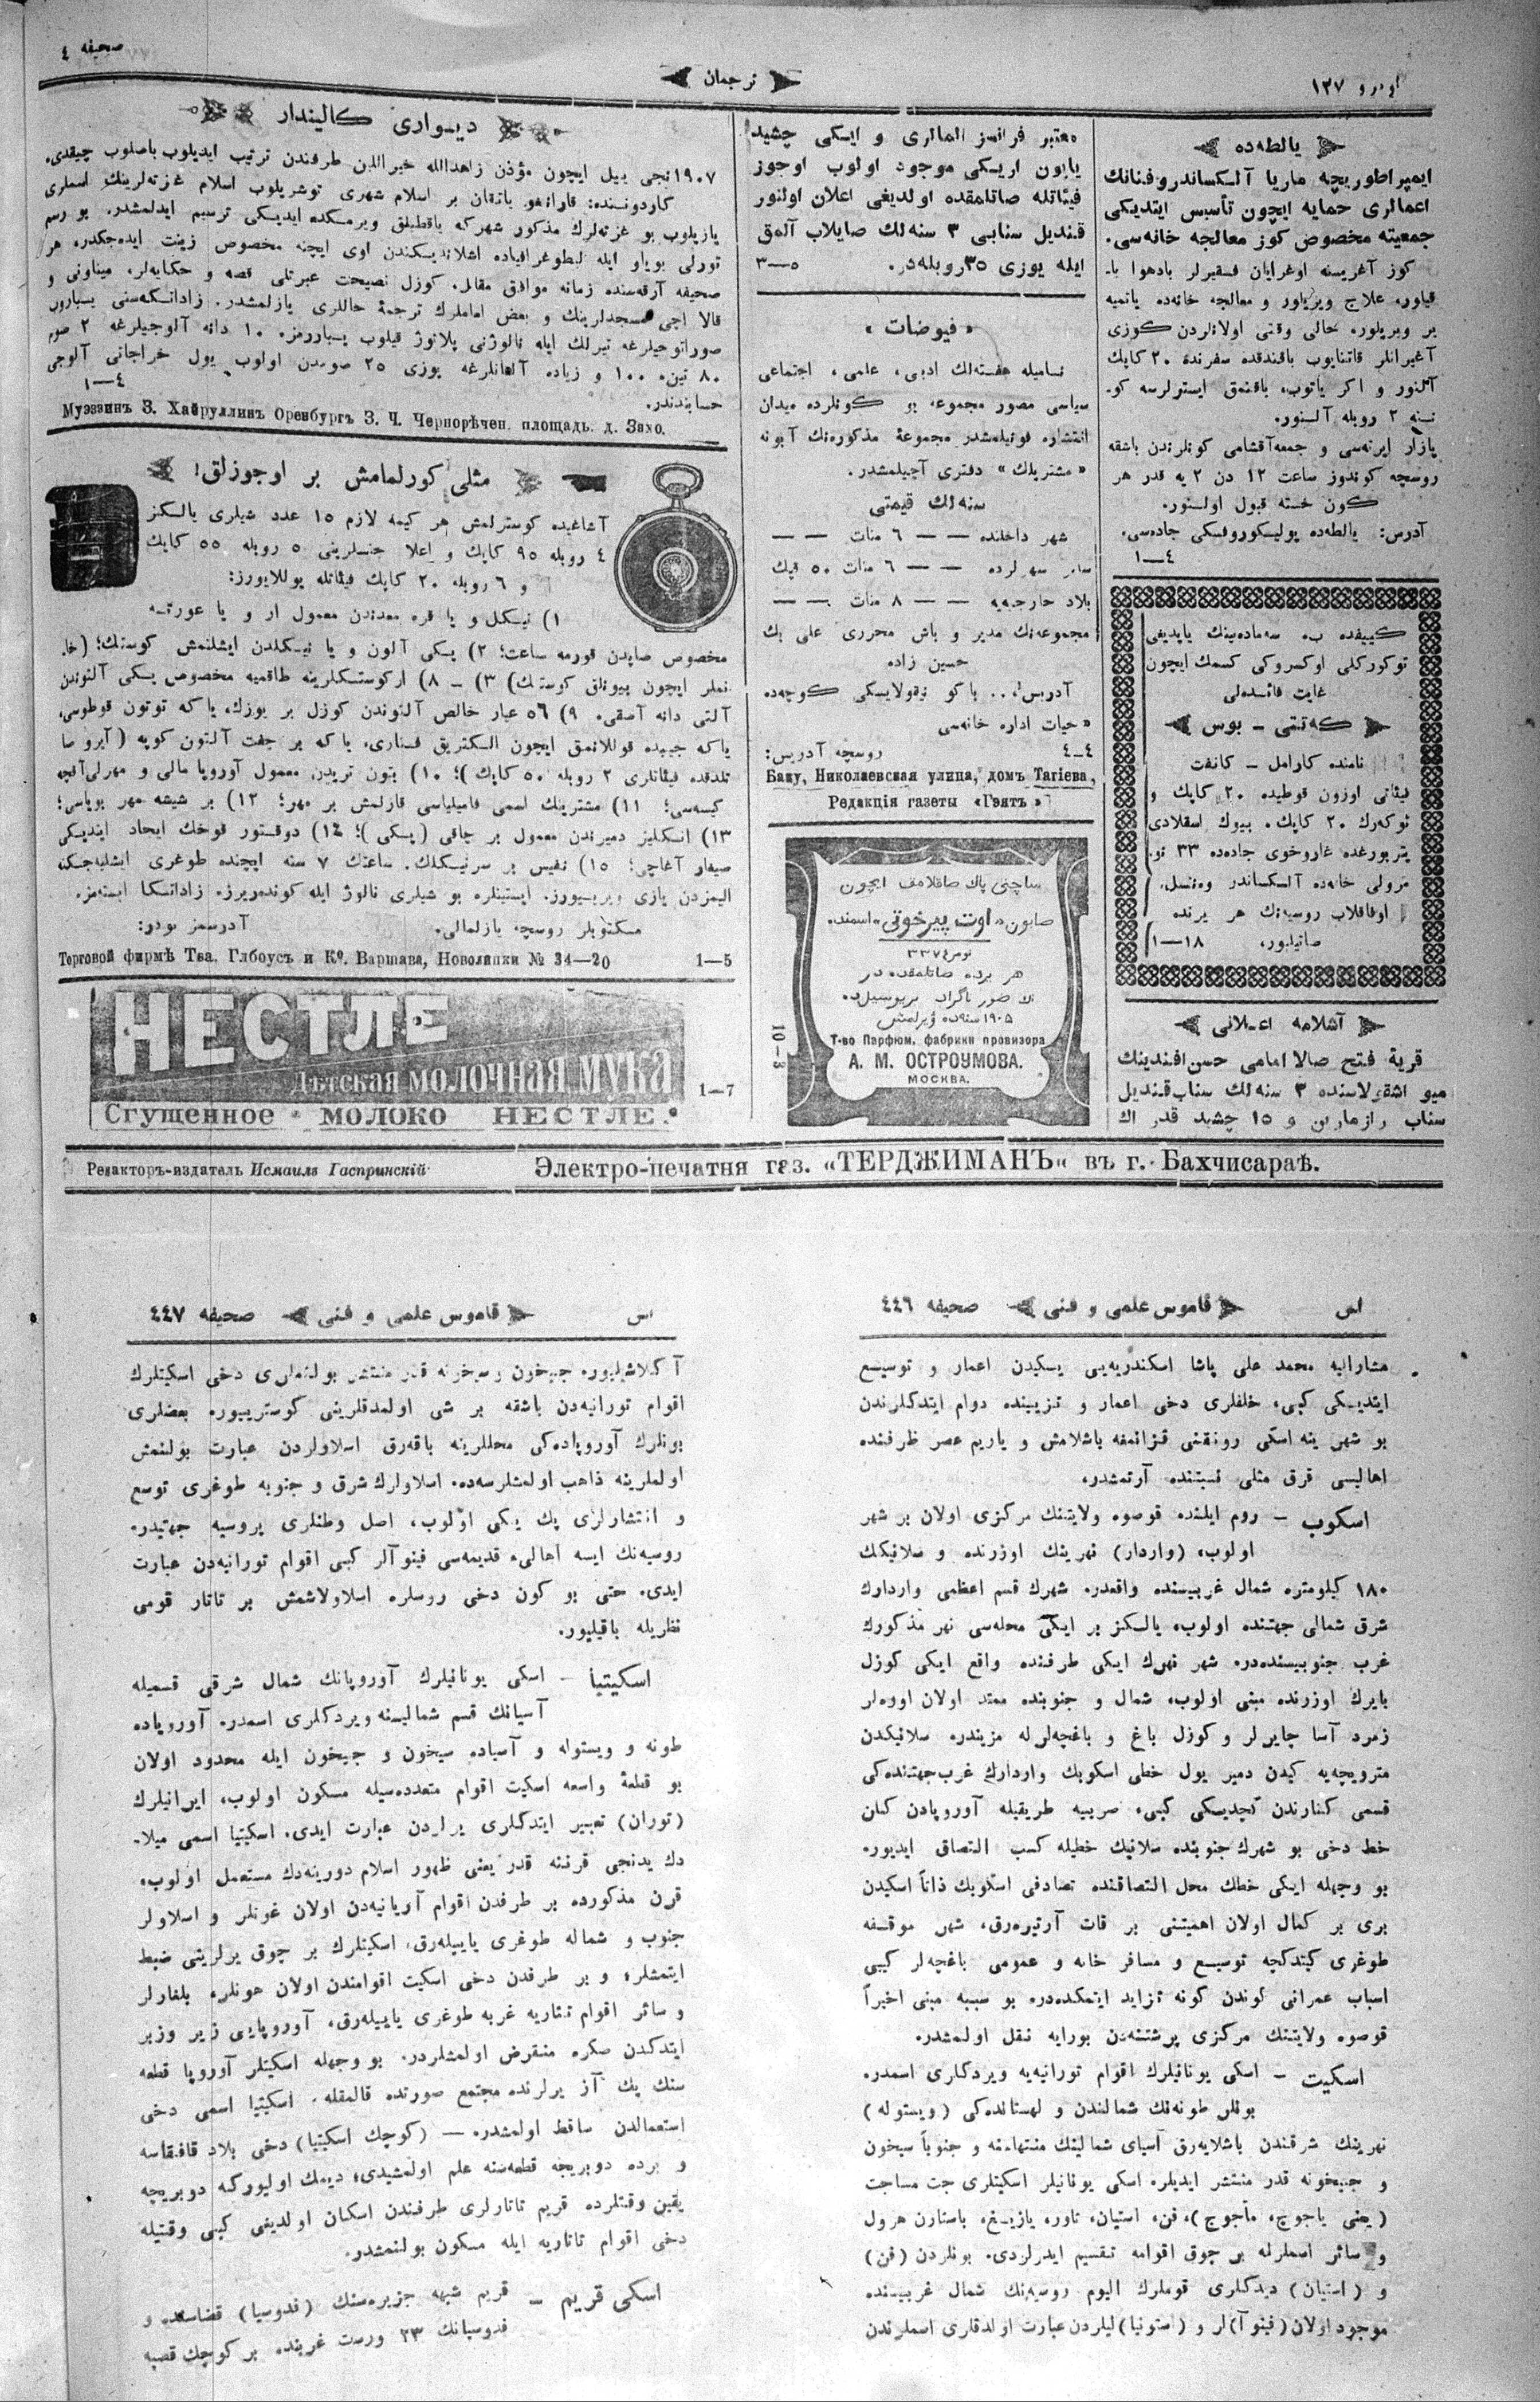 نومرو ١٣٧
ترجمان
صحیفه ٤
یالطه‌ده
ایمپراطوریچه ماریا آلکساندروفنانك
اعمالری حمایه ایچون تأسیس ایتدیکی
جمعیته مخصوص کوز معالجه خانه‌سی.
کوز آغریسنه اوغرایان فقیرلر بادهوا با-
قیلور، علاج ویریلور و معالجه خانه‌ده یاتمیه
یر ویریلور. حالی وقتی اولانلردن کوزی
آغیرانلر قاتنایوب باقندقده سفرنده ٢٠ کاپك
آلنور و اکر یاتوب، باقنمق ایسترلرسه کو-
ننه ٢ روبله آلنور.
پازار ایرته‌سی و جمعه آقشامی کونلرندن باشقه
روسچه کوندوز ساعت ١٢ دن ٢ یه قدر هر
کون خسته قبول اولنور.
آدرس: یالطه‌ده پولیکوروفسکی جاده‌سی.
٤—١
کییفده ب. سه‌ماده‌نینك یاپدیغی
توکورکلی اوکسروکی کسمك ایچون
غایت فائده‌لی
که‌تتی ـ بوس
نامنده کارامل ـ کانفت
فیئاتی اوزون قوطیده ٢٠ کاپك و
توکه‌رك ٢٠ کاپك. بیوك اسقلادی
پتربورغده غاروخوی جاده‌ده ٣٣ نو.
مرولی خانه‌ده آلکساندر وه‌نسل.
اوفاقلاب روسیه‌نك هر یرنده
صاتیلور. ١٨—١
آشلامه اعلانی
قریهٔ فتح صالا امامی حسن افندینك
میو اشقولاسنده ٣ سنه‌لك سناب قندیل
سناب رازمارین و ١٥ چشید قدر اك
معتبر فرانسز المالری و ایکی چشید
یاپون اریکی موجود اولوب اوجوز
فیئاتله صاتلمقده اولدیغی اعلان اولنور
قندیل سنابی ٣ سنه‌لك صایلاب آلمق
ایله یوزی ٣٥ روبله‌در. ٥—٣
« فیوضات »
نامیله هفته‌لك ادبی، علمی، اجتماعی
سیاسی مصور مجموعه بو کونلرده میدان
انتشاره قونیلمشدر مجموعهٔ مذکوره‌نك آبونه
« مشتریلك » دفتری آچیلمشدر.
سنه‌لك قیمتی
شهر داخلنده — — ٦ منات — —
سائر شهرلرده — — ٦ منات ٥٠ قپك
بلاد خارجیه‌یه — — ٨ منات — —
مجموعه‌نك مدیر و باش محرری علی بك
حسین زاده
آدریس:.. باکو نیقولایسکی کوچه‌ده
« حیات اداره خانه‌سی
٤ـ٤ روسچه آدریس:
Баку, Николаевская улица, домъ Тагіева,
Редакція газеты «Гэятъ»
ساچنی پاك صاقلامق ایچون
صابون «اوت پیرخوتی» اسمنده
نومر ٣٣٧٤
هر یرده صاتلمقده در
١٩٠٥ سنه‌ده ویرلمش
Т-во Парфюм. фабрики провизора
А. М. ОСТРОУМОВА.
МОСКВА.
10—3
دیواری کالیندار
١٩٠٧ نجی ییل ایچون مؤذن زاهدالله خیراللین طرفندن ترتیب ایدیلوب باصلوب چیقدی.
کاردونسنده: قارانغو باتقان بر اسلام شهری توشریلوب اسلام غزته‌لرینك اسملری
یازیلوب بو غزته‌لرك مذکور شهرکه یاقطیلق ویرمکده ایدیکی ترسیم ایدلمشدر. بو رسم
تورلی بویاو ایله لیطوغرافیاده اشلاندیکندن اوی ایچنه مخصوص زینت ایده‌جکدر، هر
صحیفه آرقه‌سنده زمانه موافق مقال، کوزل نصیحت عبرتلی قصه و حکایه‌لر، میناونی و
قالا اچی مسجدلرینك و بعض اماملرك ترجمهٔ حاللری یازلمشدر. زادانکه‌سنی یباروب
صوراتوجیلرغه تیزلك ایله نالوژنی پلاتوژ قیلوب یبارمز. ١٠ دانه آلوجیلرغه ٢ صوم
٨٠ تین. ١٠٠ و زیاده آلغانلرغه یوزی ٢٥ صومدن اولوب یول خراجاتی آلوجی
حسابندندر. ٤—١
Муэззинъ З. Хайруллинъ Оренбургъ З. Ч. Чернорѣчен. площадь. д. Захо.
مثلی کورلمامش بر اوجوزلق!
آشاغیده کوسترلمش هر کیمه لازم ١٥ عدد شیلری یالکز
٤ روبله ٩٥ کاپك و اعلا جنسلرینی ٥ روبله ٥٥ کاپك
و ٦ روبله ٢٠ کاپك فیئاتله یوللایورز:
١) نیکل و یا قره معدندن معمول ار و یا عورته
مخصوص صاپدن قورمه ساعت؛ ٢) یکی آلون و یا نیکلدن ایشلنمش کوستك؛ (خا.
نملر ایچون بیونلق کوستك) ٣) ـ ٨) ارکوستکلرینه طاقمیه مخصوص یکی آلتوندن
آلتی دانه آصقی. ٩) ٥٦ عیار خالص آلتوندن کوزل بر یوزك، یا که توتون قوطوسی،
یا که جیبده قوللانمق ایچون الکتریق فناری، یا که بر جفت آلتون کوپه (آیرو صا
تلدقده فیئاتلری ٢ روبله ٥٠ کاپك)؛ ١٠) بتون تریدن معمول آوروپا مالی و مهرلی آقچه
کیسه‌سی؛ ١١) مشترینك اسمی فامیلیاسی قازلمش بر مهر؛ ١٢) بر شیشه مهر بویاسی؛
١٣) انکلیز دمیرندن معمول بر چاقی (پکی)؛ ١٤) دوقتور قوخك ایجاد ایتدیکی
صیغار آغاچی؛ ١٥) نفیس بر سرنیکلك. ساعتك ٧ سنه ایچنده طوغری ایشلیه‌جکنه
الیمزدن یازی ویریورز. ایستینلره بو شیلری نالوژ ایله کوندریرز. زاداتکا ایسته‌مز.
مکتوبلر روسچه یازلمالی. آدرسمز بودر:
Торговой фирмѣ Тва. Глбоусъ и К°. Варшава, Новолипки № 34—20 1—5
НЕСТЛЕ
Дѣтская МОЛОЧНАЯ МУКА
Сгущенное МОЛОКО НЕСТЛЕ. 1—7
Редакторъ-издатель Исмаилъ Гаспринскій
Электро-печатня газ. «ТЕРДЖИМАНЪ« въ г. Бахчисараѣ.
اس قاموس علمی و فنی صحیفه ٤٤٦
مشارالیه محمد علی پاشا اسکندریه‌یی یکیدن اعمار و توسیع
ایتدیکی کبی، خلفلری دخی اعمار و تزییننده دوام ایتدکلرندن
بو شهر ینه اسکی رونقنی قزانمغه باشلامش و یاریم عصر ظرفنده
اهالیسی قرق مثلی نسبتنده آرتمشدر.
اسکوب ـ روم ایلنده قوصوه ولایتنك مرکزی اولان بر شهر
اولوب، (واردار) نهرینك اوزرنده و سلانیكك
١٨٠ کیلومتره شمال غربیسنده واقعدر. شهرك قسم اعظمی وارداردك
شرق شمالی جهتنده اولوب، یالکز بر ایکی محله‌سی نهر مذکورك
غرب جنوبیسنده‌در. شهر نهرك ایکی طرفنده واقع ایکی کوزل
بایرك اوزرنده مبنی اولوب، شمال و جنوبنده ممتد اولان اووه‌لر
زمرد آسا چایرلر و کوزل باغ و باغچه‌لرله مزیندر. سلانیکدن
مترویچه‌یه کیدن دمیر یول خطی اسکوبك واردارك غرب جهتنده‌کی
قسمی کنارندن کچدیکی کبی، صربیه طریقیله آوروپادن کلن
خط دخی بو شهرك جنوبنده سلانیك خطیله کسب التصاق ایدیور.
بو وجهله ایکی خطك محل التصاقنده تصادفی اسکوبك ذاتاً اسکیدن
بری بر کمال اولان اهمیتنی بر قات آرتیره‌رق، شهر موقفه
طوغری کیتدکجه توسیع و مسافر خانه و عمومی باغچه‌لر کیبی
اسباب عمرانی کوندن کونه تزاید ایتمکده‌در. بو سببه مبنی اخیراً
قوصوه ولایتنك مرکزی پرشتنه‌دن بورایه نقل اولمشدر.
اسکیت ـ اسکی یونانیلرك اقوام تورانیه‌یه ویردکلری اسمدر.
بونلر طونه‌نك شمالندن و لهستانده‌کی (ویستوله)
نهرینك شرقندن باشلایه‌رق آسیای شمالینك منتهاسنه و جنوباً سیحون
و جیحونه قدر منتشر ایدیلر. اسکی یونانیلر اسکیتلری جت مساجت
(یعنی یاجوج، مأجوج)، فن، استیان، تاور، یازیغ، باستارن هرول
و سائر اسملرله بر چوق اقوامه تقسیم ایدرلردی. بونلردن (فن)
و (استیان) دیدکلری قوملرك الیوم روسیه‌نك شمال غربیسنده
موجود اولان (فینوآ)لر و (استونیا)لیلردن عبارت اولدقلری اسملرندن
اس قاموس علمی و فنی صحیفه ٤٤٧
آکلاشیلیور. جیحون و سیحونه قدر منتشر بولنملری دخی اسکیتلرك
اقوام تورانیه‌دن باشقه بر شی اولمدقلرینی کوستریبور. بعضلری
بونلرك آوروپاده‌کی محللرینه باقه‌رق اسلاولردن عبارت بولنمش
اولملرینه ذاهب اولمشلرسه‌ده. اسلاولرك شرق و جنوبه طوغری توسع
و انتشارلری پك یکی اولوب، اصل وطنلری پروسیه جهتیدر.
روسیه‌نك ایسه اهالیء قدیمه‌سی فینوآلر کبی اقوام تورانیه‌دن عبارت
ایدی. حتی بو کون دخی روسلره اسلاولاشمش بر تاتار قومی
نظریله باقیلیور.
اسکیتیا ـ اسکی یونانیلرك آوروپانك شمال شرقی قسمیله
آسیانك قسم شمالیسنه ویردکلری اسمدر. آوروپاده
طونه و ویستوله و آسیاده سیحون و جیحون ایله محدود اولان
بو قطعهٔ واسعه اسکیت اقوام متعدده‌سیله مسکون اولوب، ایرانیلرك
(توران) تعبیر ایتدکلری یرلردن عبارت ایدی. اسکیتیا اسمی میلا-
دك یدنجی قرننه قدر یعنی ظهور اسلام دورینه‌دك مستعمل اولوب.
قرن مذکورده بر طرفدن اقوام آریانیه‌دن اولان غوتلر و اسلاولر
جنوب و شماله طوغری یاییله‌رق، اسکیتلرك بر چوق یرلرینی ضبط
ایتمشلر، و بر طرفدن دخی اسکیت اقوامندن اولان هونلر، بلغارلر
و سائر اقوام تتاریه غربه طوغری یاییله‌رق، آوروپایی زیر وزبر
ایتدکدن صکره منقرض اولمشلردر. بو وجهله اسکیتلر آوروپا قطعه
سنك پك آز یرلرنده مجتمع صورتده قالمقله، اسکیتیا اسمی دخی
استعمالدن ساقط اولمشدر. — (کوچك اسکیتیا) دخی بلاد قافقاسه
و برده دوبریجه قطعه‌سنه علم اولمشیدی، دیمك اولیورکه دوبریچه
یقین وقتلرده قریم تاتارلری طرفندن اسکان اولدیغی کبی وقتیله
دخی اقوام تاتاریه ایله مسکون بولنمشدر.
اسکی قریم ـ قریم شبهه جزیره‌سنك (فدوسیا) قضاسنده و
فدوسیانك ٢٣ ورست غربنده بر کوچك قصبه